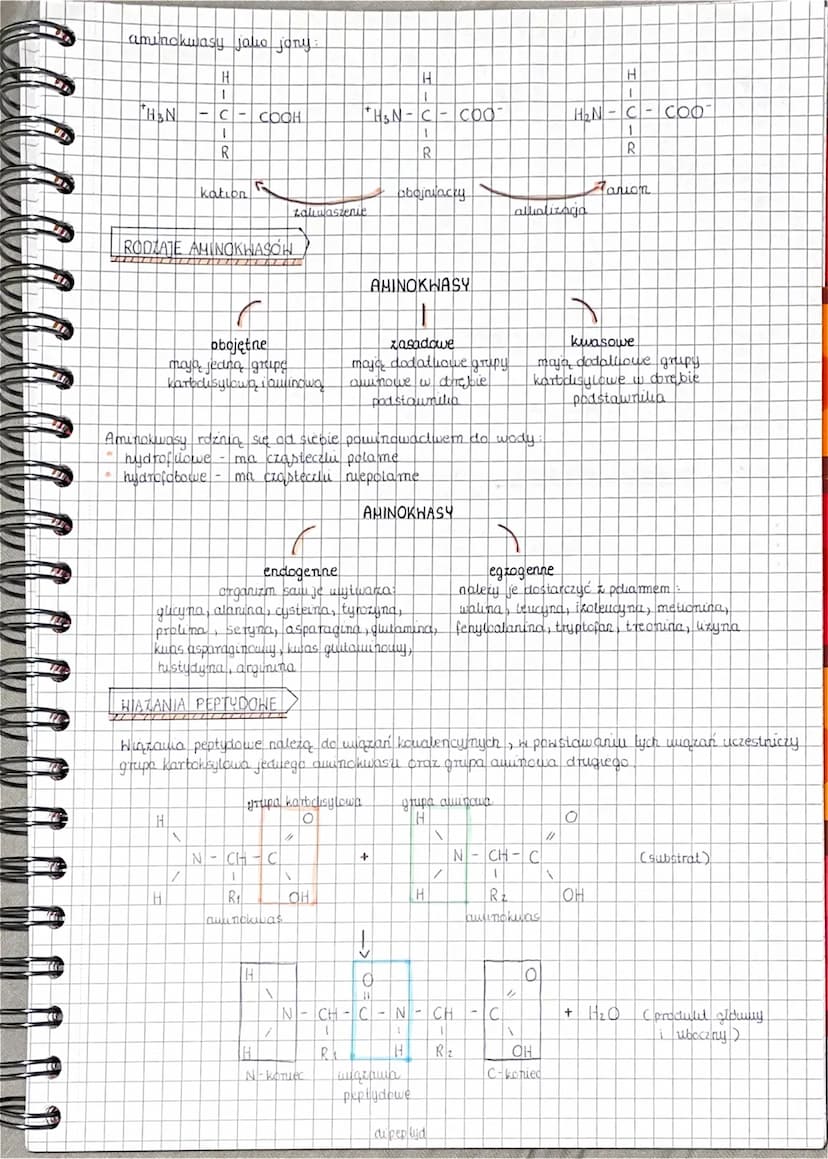 aminokwasy jako jony:
H H H
| | |
⁺H₃N - C - COOH ⁺H₃N - C - COO⁻ H₂N - C - COO⁻
| | |
R R R
kation obojniaczy anion
zakwaszenie alkalizacja
RODZAJE AMINOKWASÓW
AMINOKWASY
obojętne zasadowe kwasowe
mają jedną grupę mają dodatkowe grupy mają dodatkowe grupy
karboksylową i aminową aminowe w obrębie karboksylowe w obrębie
podstawnika podstawnika
Aminokwasy różnią się od siebie powinowactwem do wody:
• hydrofilowe - ma cząsteczki polarne
• hydrofobowe - ma cząsteczki niepolarne
AMINOKWASY
endogenne egzogenne
organizm sam je wytwarza: należy je dostarczyć z pokarmem:
glicyna, alanina, cysteina, tyrozyna, walina, leucyna, izoleucyna, metionina,
prolina, seryna, asparagina, glutamina, fenyloalanina, tryptofan, treonina, lizyna
kwas asparaginowy, kwas glutaminowy,
histydyna, arginina
WIĄZANIA PEPTYDOWE
Wiązania peptydowe należą do wiązań kowalencyjnych, w powstawaniu tych wiązań uczestniczy
grupa karboksylowa jednego aminokwasu oraz grupa aminowa drugiego.
grupa karboksylowa grupa aminowa
H O H O
\ // \ //
N - CH - C + N - CH - C (substrat)
/ | \ / | \
H R₁ OH H R₂ OH
aminokwas aminokwas
↓
H O O
\ || //
N - CH - C - N - CH - C + H₂O (produkt główny
/ | | | \ i uboczny)
H R₁ H R₂ OH
N-koniec wiązania C-koniec
peptydowe
dipeptyd